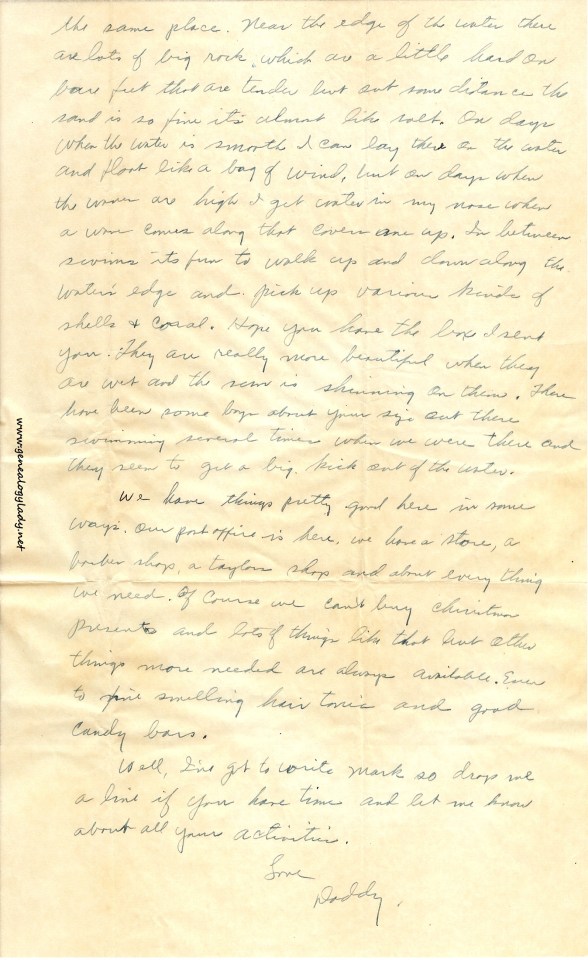 the same place. Near the edge of the water there
are lots of big rock, which are a little hard on
bare feet that are tender but out some distance the
sand is so fine it's almost like salt. On days
when the water is smooth I can lay there on the water
and float like a bag of wind, but on days when
the waves are high I get water in my nose when
a wave comes along that covers me up. In between
swims its fun to walk up and down along the
water's edge and pick up various kinds of
shells & coral. Hope you have the box I sent
you. They are really more beautiful when they
are wet and the sun is shinning on them. There
have been some boys about your size out there
swimming several times when we were there and
they seem to get a big kick out of the water.
We have things pretty good here in some
ways. Our post office is here, we have a store, a
barber shop, a taylors shop and about every thing
we need. Of course we can't buy Christmas
presents and lots of things like that but other
things more needed are always available. Even
to fine smelling hair tonic and good
candy bars.
Well, I've got to write Mark so drop me
a line if you have time and let me know
about all your activities.
Love
Daddy.
www.genealogylady.net